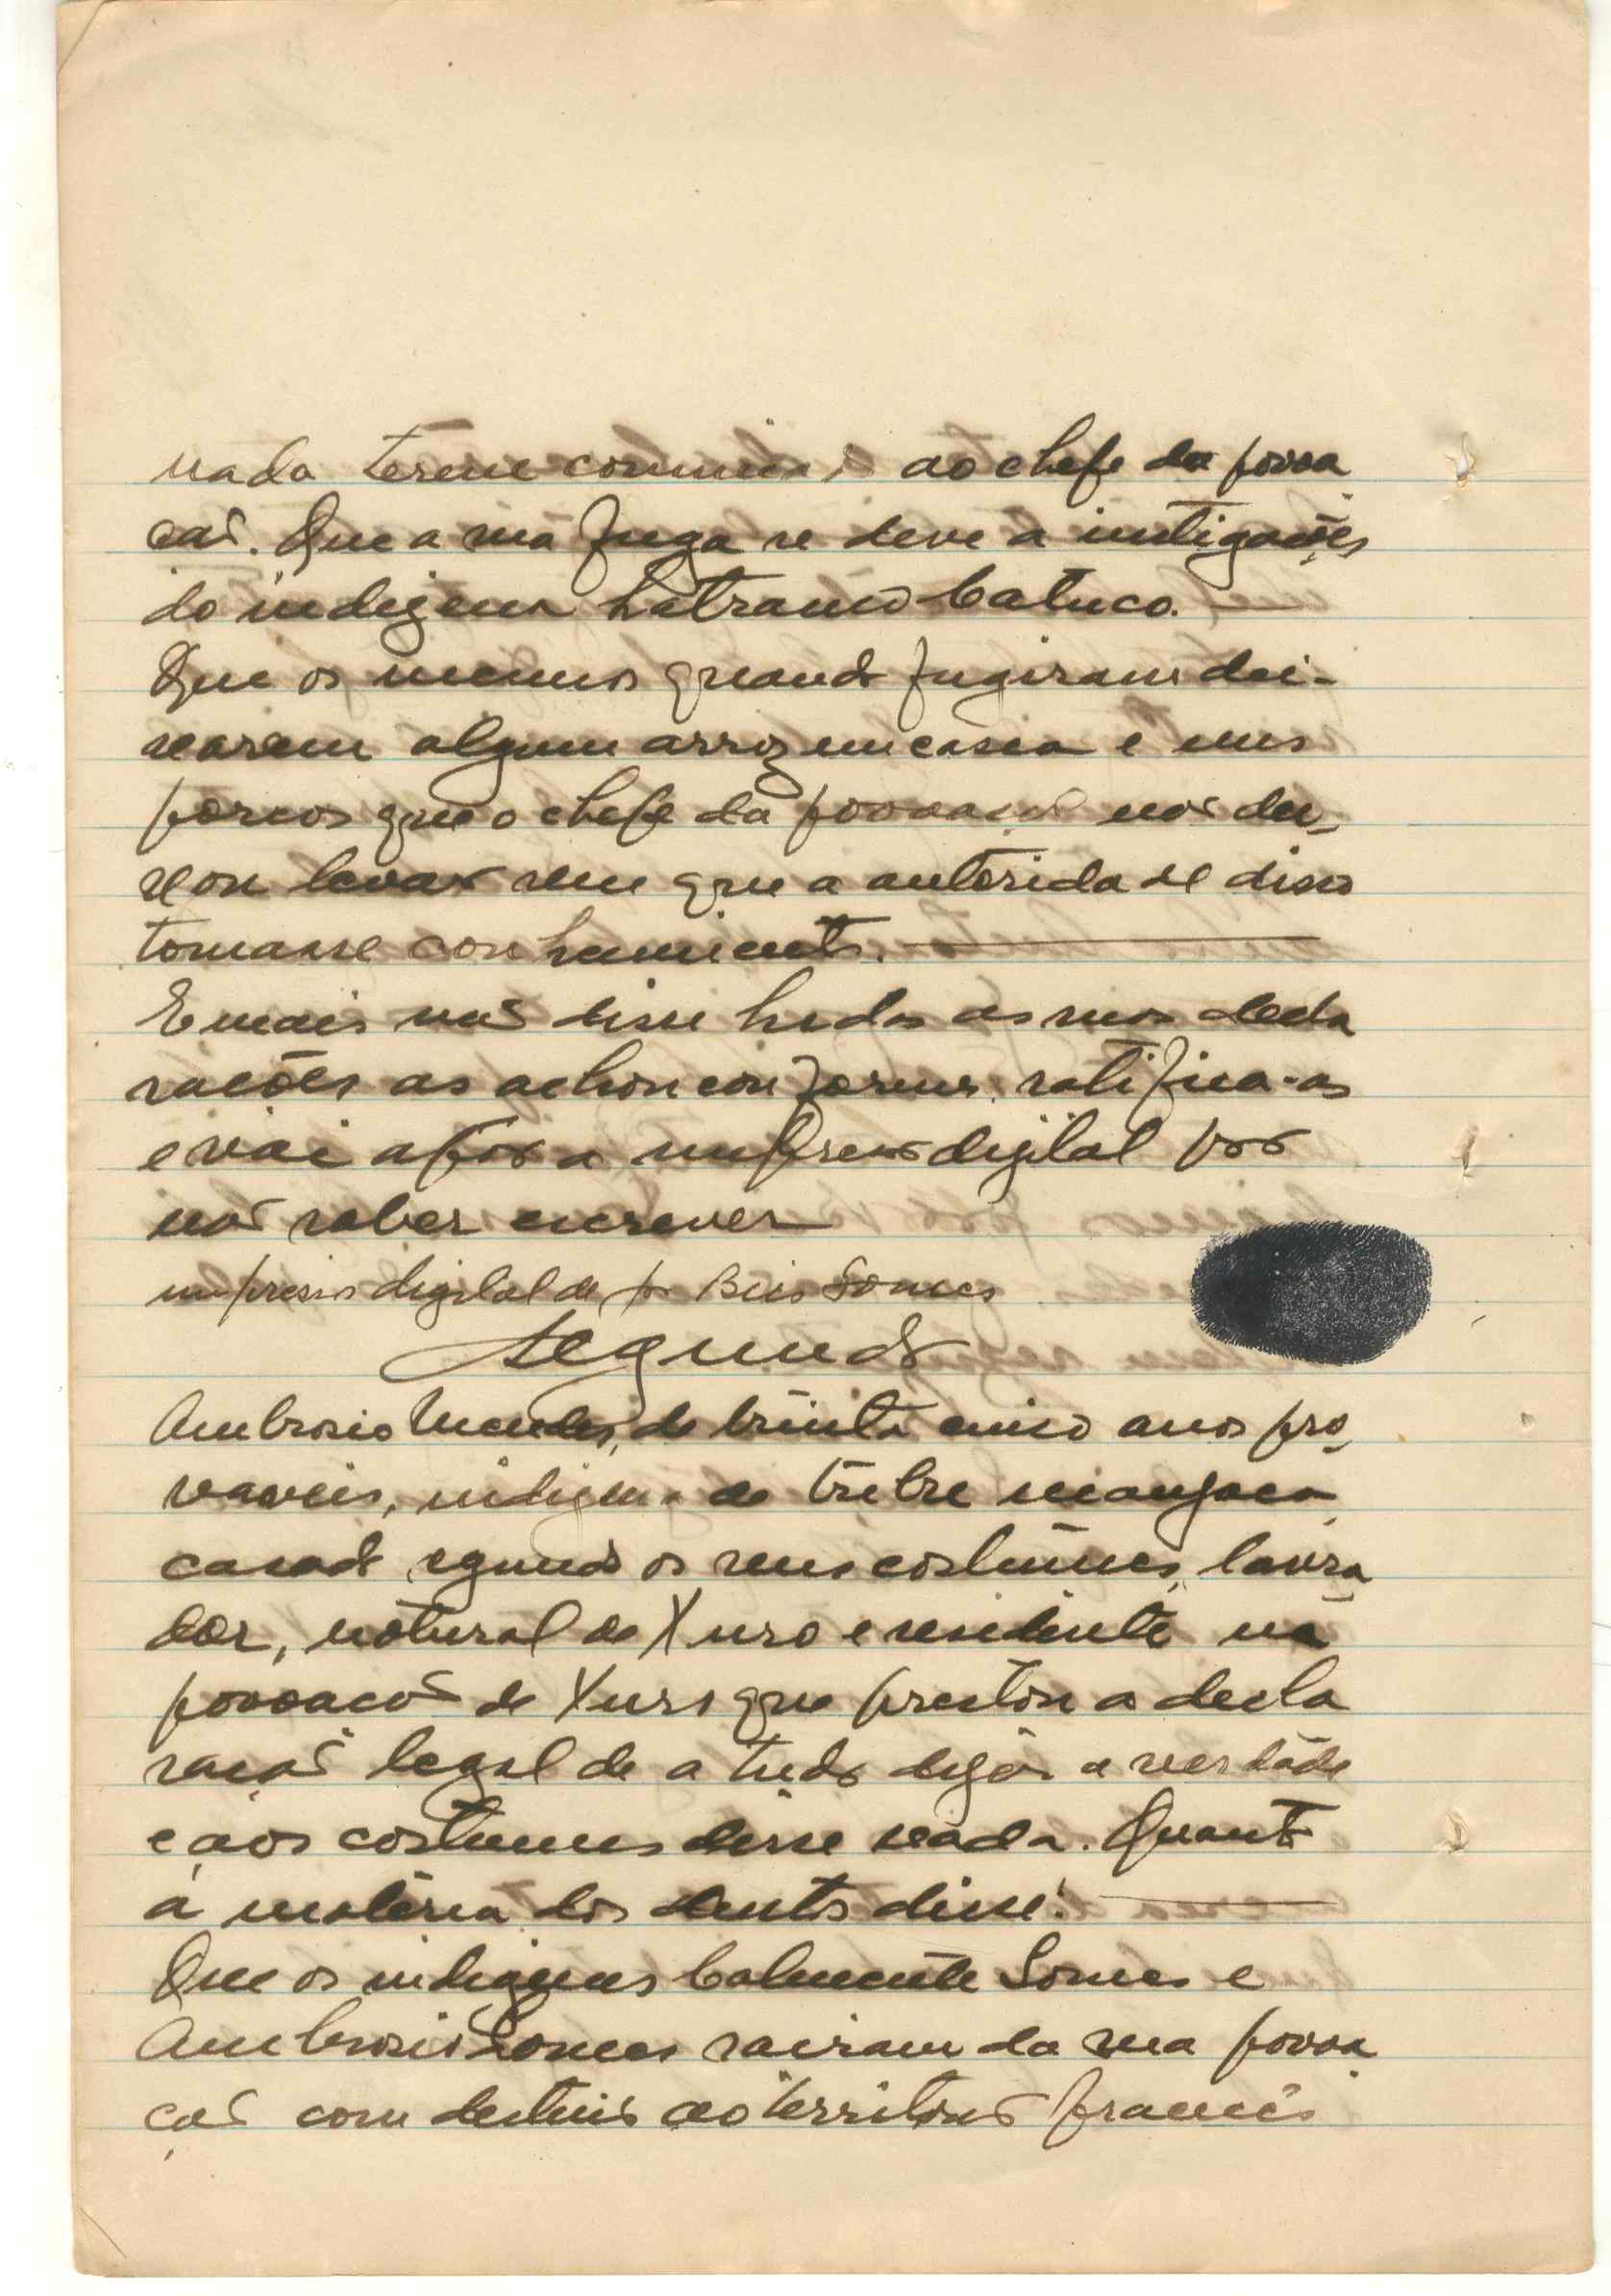 nada terem comunicado ao chefe da povoa
ção. Que a sua fuga se deve a instigações
do indigena Catuco.
Que os mesmos quando fugiram dei-
xaram algum arroz em casa e uns
porcos que o chefe da povoação não dei-
xou levar sem que a autoridade disso
tomasse conhecimento.
E mais não disse lidas as suas decla
rações as achou conformes, ratifica-as
e vai apôr a impressão digital por
não saber escrever
impressão digital de Gomes
Segundo
Ambrosio Mendes, de trinta cinco anos pro
vaveis, indigena da tribu manjaca
casado segundo os seus costumes, lavra
dor, natural de Xuro e residente na
povoação de Xuro que prestou a decla
ração legal de a tudo dizer a verdade
e aos costumes disse nada. Quanto
á matéria dos autos disse:
Que os indigenas Calmente Gomes e
Ambrosio Gomes sairam da sua povoa
ção com destino ao território francês